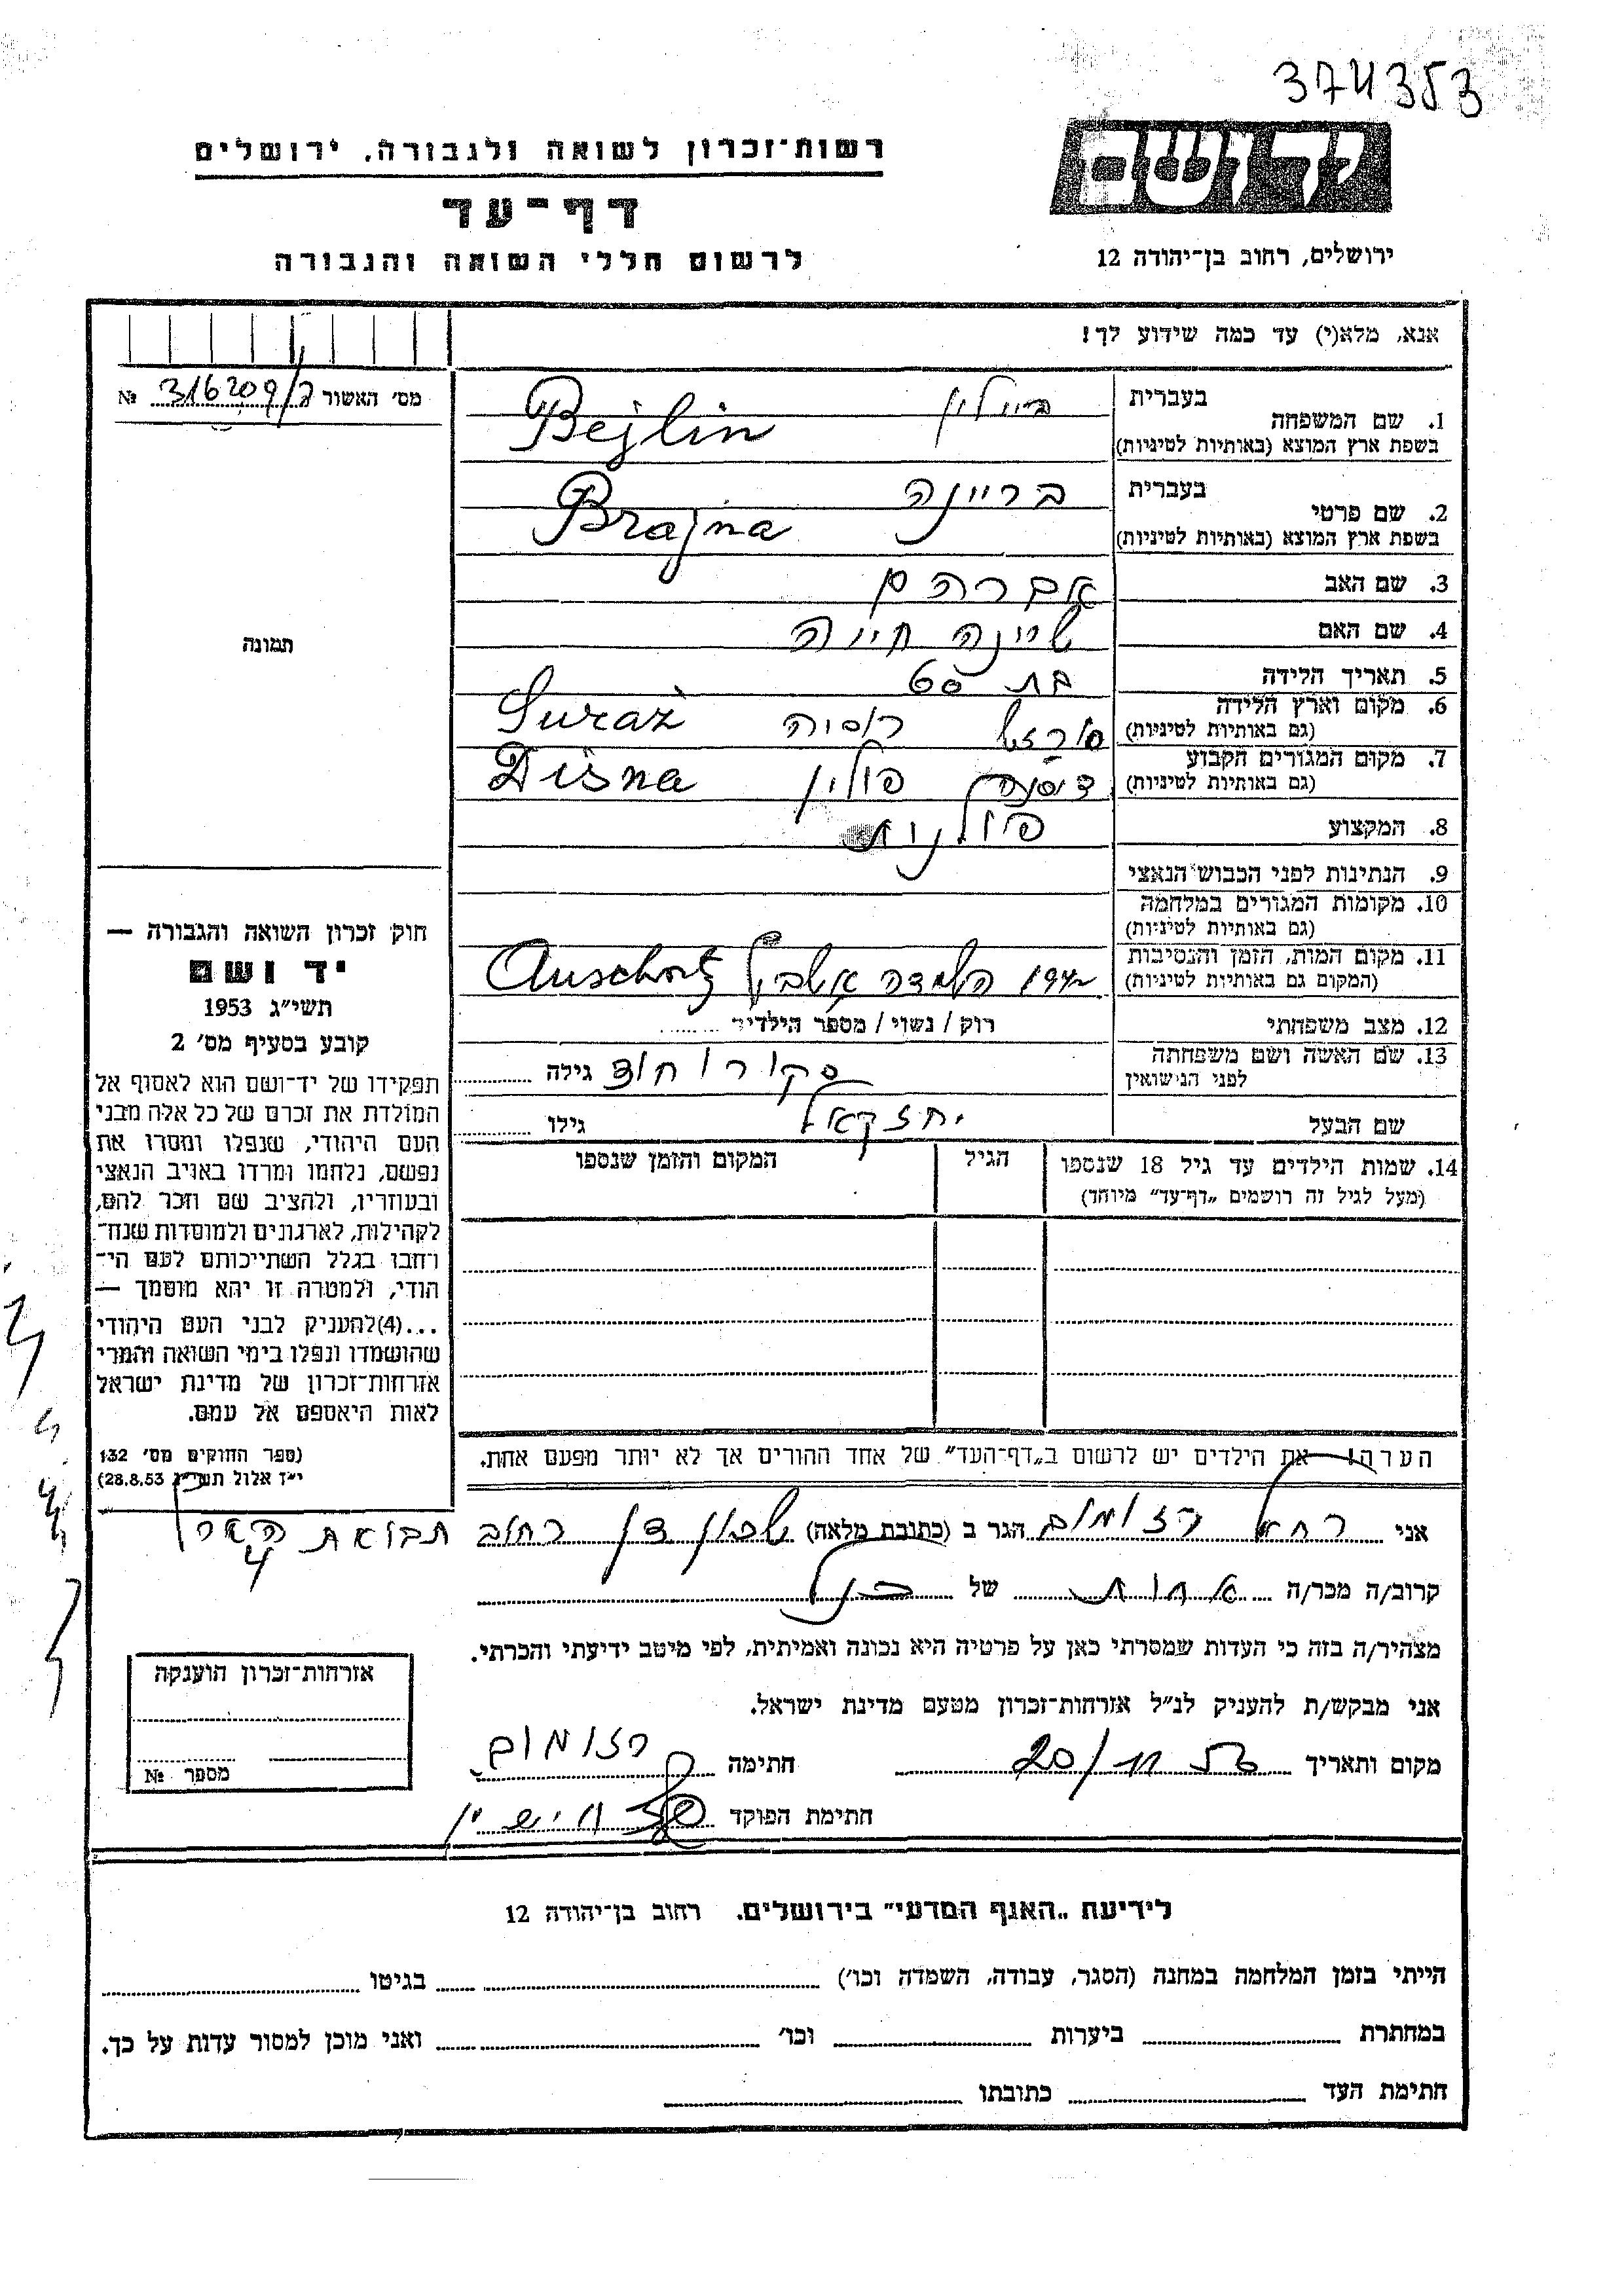 374353
רשות־זכרון לשואה ולגבורה, ירושלים
דף־עד
לרשום חללי השואה והגבורה
ידושם
ירושלים, רחוב בן־יהודה 12
אנא, מלא(י) עד כמה שידוע לך!
מס' האשור 316209/ № 
1. שם המשפחה בעברית ביילין
בשפת ארץ המוצא (באותיות לטיניות) Bejlin
2. שם פרטי בעברית בריינה
בשפת ארץ המוצא (באותיות לטיניות) Brajna
3. שם האב אברהם
4. שם האם שיינה חייה
תמונה
5. תאריך הלידה בת 60
6. מקום וארץ הלידה (גם באותיות לטיניות) סורז' רוסיה Suraż
7. מקום המגורים הקבוע (גם באותיות לטיניות) דיסנה פולין Disna
8. המקצוע
9. הנתינות לפני הכבוש הנאצי פולנית
10. מקומות המגורים במלחמה (גם באותיות לטיניות)
11. מקום המות, הזמן והנסיבות (המקום גם באותיות לטיניות) 1942 השמדה
12. מצב משפחתי רוק / נשוי / מספר הילדים
13. שם האשה ושם משפחתה לפני הנישואין גילה
שם הבעל יחזקאל גילו
14. שמות הילדים עד גיל 18 שנספו הגיל המקום והזמן שנספו
(מעל לגיל זה רושמים „דף־עד" מיוחד)
חוק זכרון השואה והגבורה —
יד ושם
תשי״ג 1953
קובע בסעיף מס' 2
תפקידו של יד־ושם הוא לאסוף אל
המולדת את זכרם של כל אלה מבני
העם היהודי, שנפלו ומסרו את
נפשם, נלחמו ומרדו באויב הנאצי
ובעוזריו, ולהציב שם וזכר להם,
לקהילות, לארגונים ולמוסדות שנח־
רחבו בגלל השתייכותם לעם הי־
הודי, ולמטרה זו יהא מוסמך —
...(4)להעניק לבני העם היהודי
שהושמדו ונפלו בימי השואה והמרי
אזרחות־זכרון של מדינת ישראל
לאות היאספם אל עמם.
(ספר החוקים מס' 132
י״ז אלול תשי״ג 28.8.53)
הערה! את הילדים יש לרשום ב„דף־העד" של אחד ההורים אך לא יותר מפעם אחת.
אני רחל הגר ב (כתובת מלאה) שכון דן רחוב תבואת הארץ 4
קרוב/ה מכר/ה אחות של הנ״ל
מצהיר/ה בזה כי העדות שמסרתי כאן על פרטיה היא נכונה ואמיתית, לפי מיטב ידיעתי והכרתי.
אני מבקש/ת להעניק לנ״ל אזרחות־זכרון מטעם מדינת ישראל.
מקום ותאריך 20/11 חתימה
חתימת הפוקד
אזרחות־זכרון הוענקה
מספר №
לידיעת „האגף המדעי" בירושלים. רחוב בן־יהודה 12
הייתי בזמן המלחמה במחנה (הסגר, עבודה, השמדה וכו') בגיטו
במחתרת ביערות וכו' ואני מוכן למסור עדות על כך.
חתימת העד כתובתו